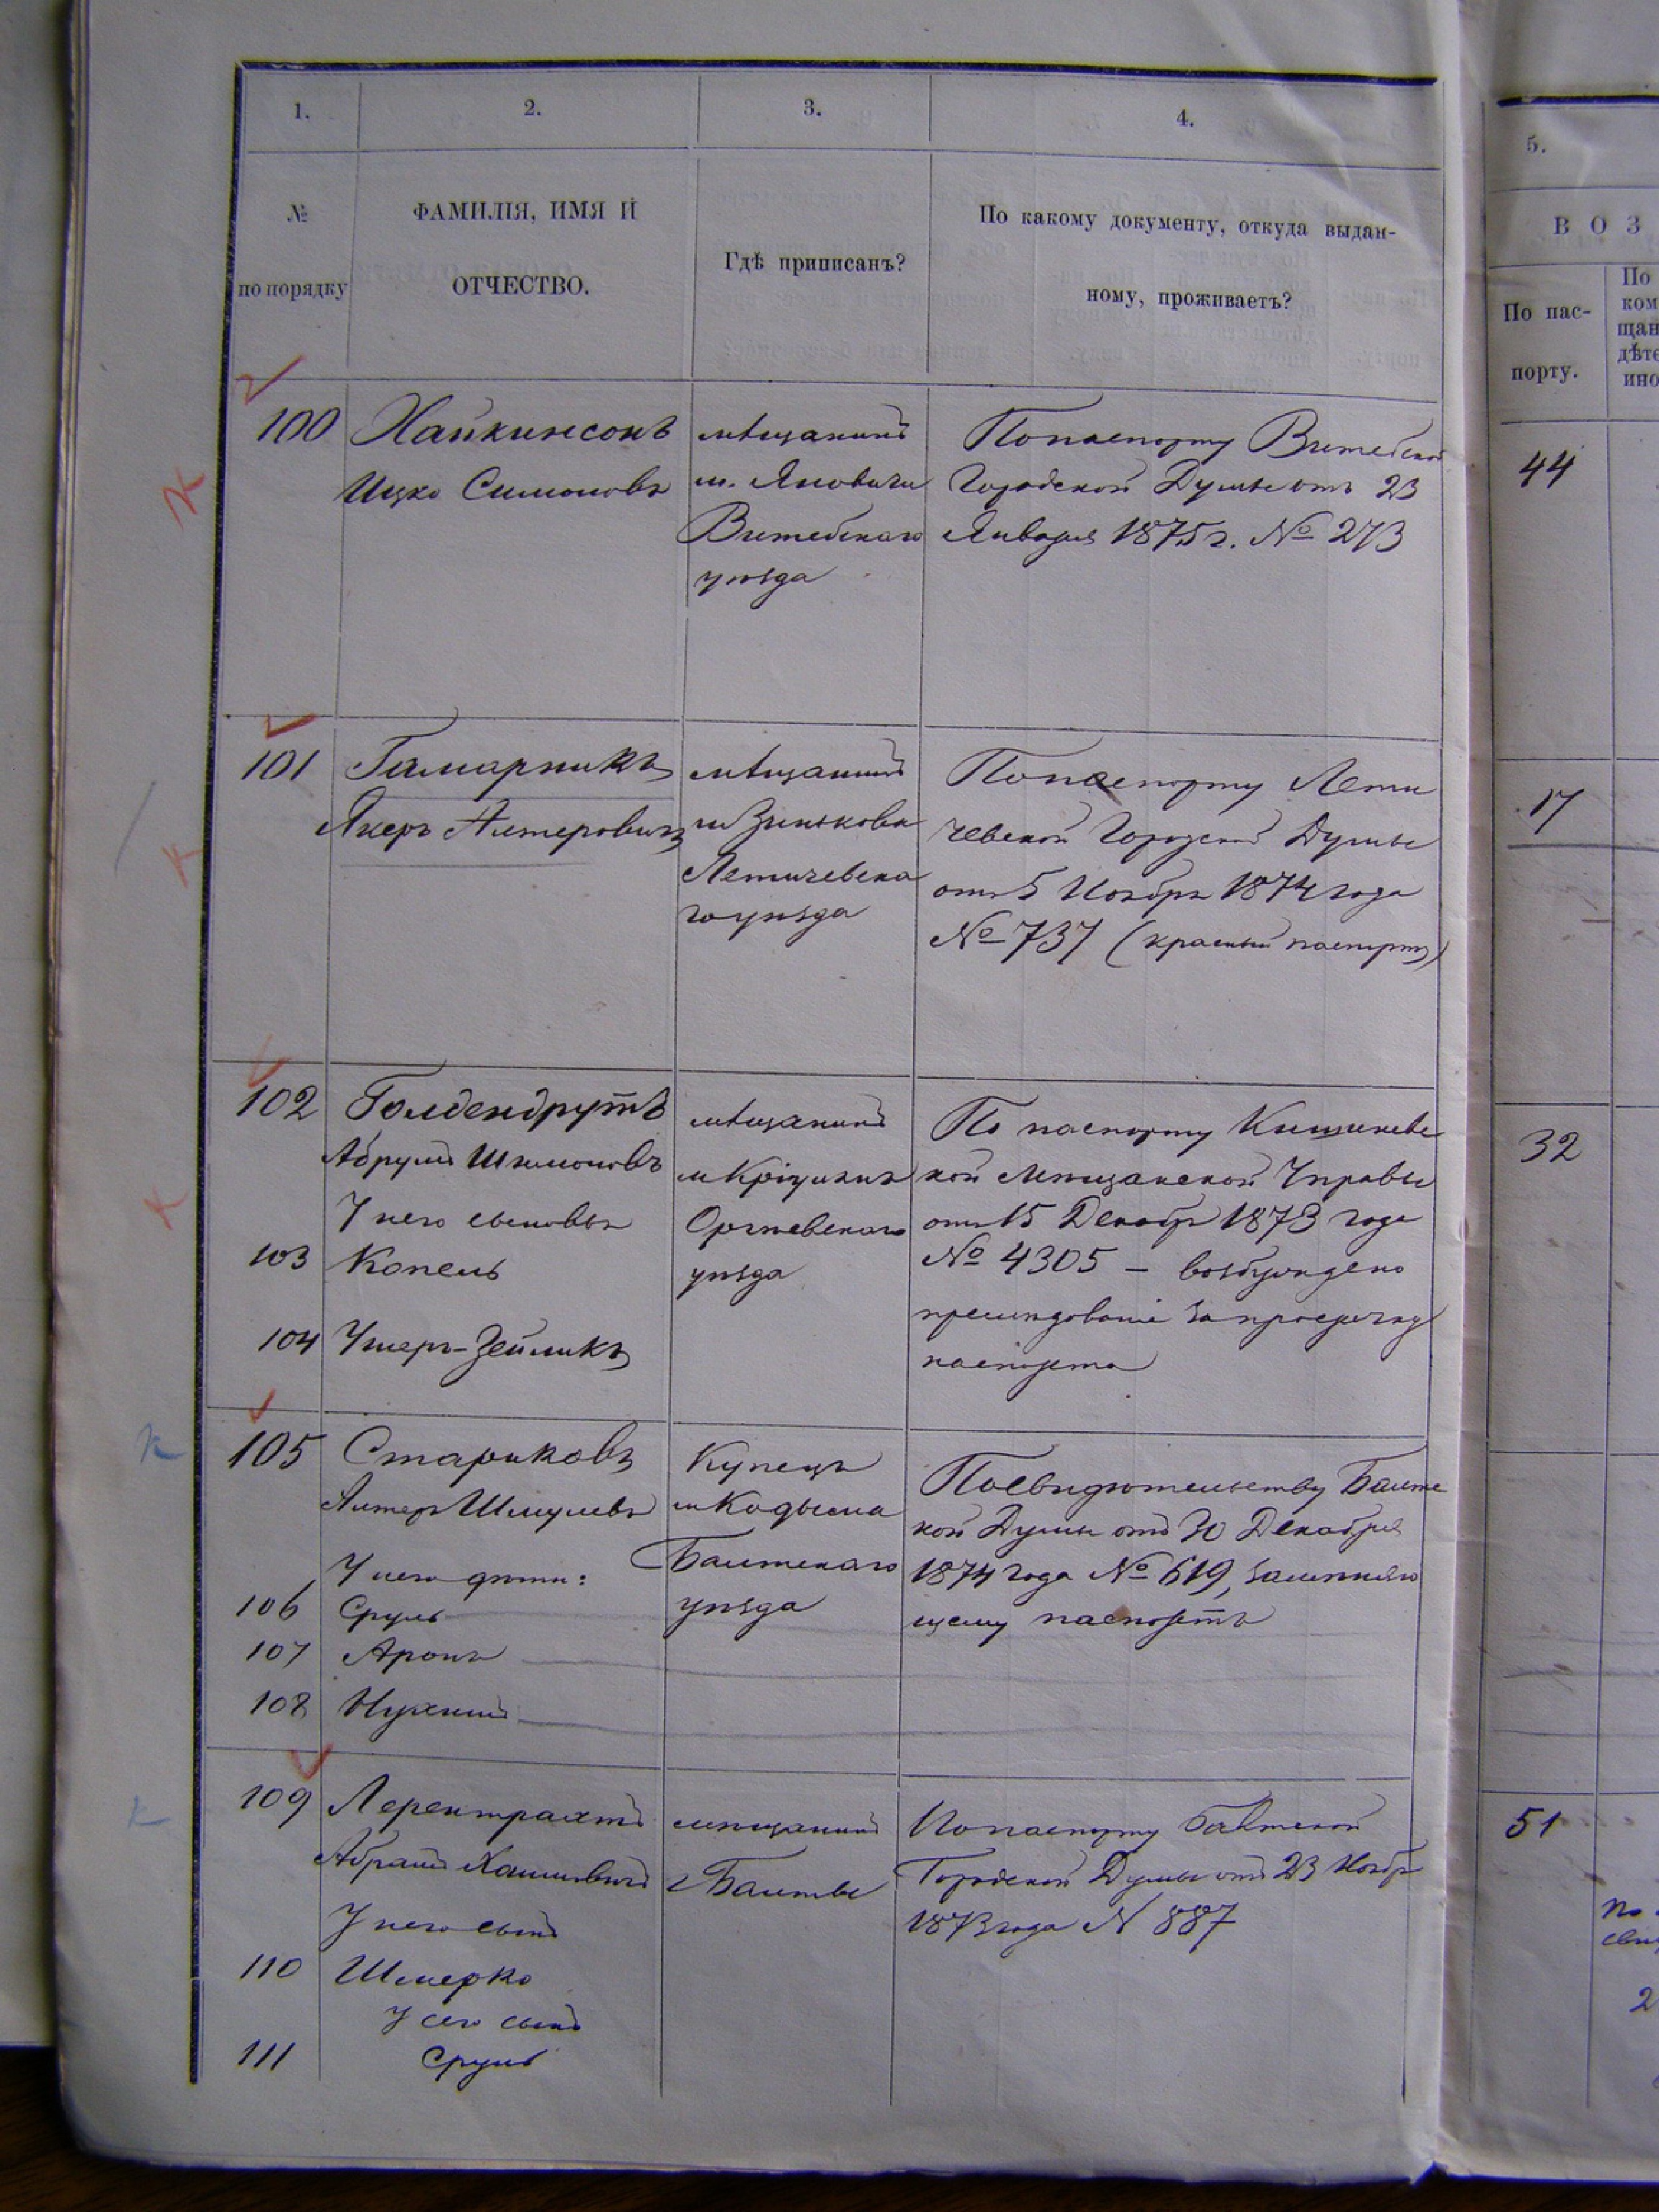 1.
2.
3.
4.
5.
№
по порядку
ФАМИЛІЯ, ИМЯ И
ОТЧЕСТВО.
Гдѣ приписанъ?
По какому документу, откуда выдан-
ному, проживаетъ?
ВОЗ
По пас-
порту.
По
ком
щан
дѣте
ино
100
Хайкинсонъ
Ицко Симоновъ
мѣщанинъ
м. Яновичи
Витебскаго
уѣзда
По паспорту Витебской
Городской Думы отъ 23
Января 1875 г. № 273
44
101
Гамарникъ
Якеръ Алтеровичъ
мѣщанинъ
м Зинькова
Летичевска
го уѣзда
По паспорту Лети
чевской Городской Думы
отъ 5 Ноября 1874 года
№ 737 (красный паспортъ)
17
102
Голдендрутъ
Абрумъ Шимоновъ
У него сыновья
103
Копель
104
Ушеръ-Зейликъ
мѣщанинъ
м
Оргѣевскаго
уѣзда
По паспорту Кишиневс
кой Мѣщанской Управы
отъ 15 Декабр 1873 года
№ 4305 – возбуждено
преслѣдованіе за просрочку
паспорта
32
105
Стариковъ
Алтеръ Шмулевъ
У него дѣти:
106
Сруль
107
Аронъ
108
Нухимъ
Купецъ
м Кодыма
Балтскаго
уѣзда
По свидѣтельству Балтс
кой Думы отъ 30 Декабря
1874 года № 619, замѣняю
щему паспортъ
109
Лерентрахтъ
Абрамъ Хаимовичъ
У него сынъ
110
Шмерко
У сего сынъ
111
Сруль
мѣщанинъ
г Балты
По паспорту Балтской
Городской Думы отъ 23 Ноябр
1873 года N 887
51
по
сви
2